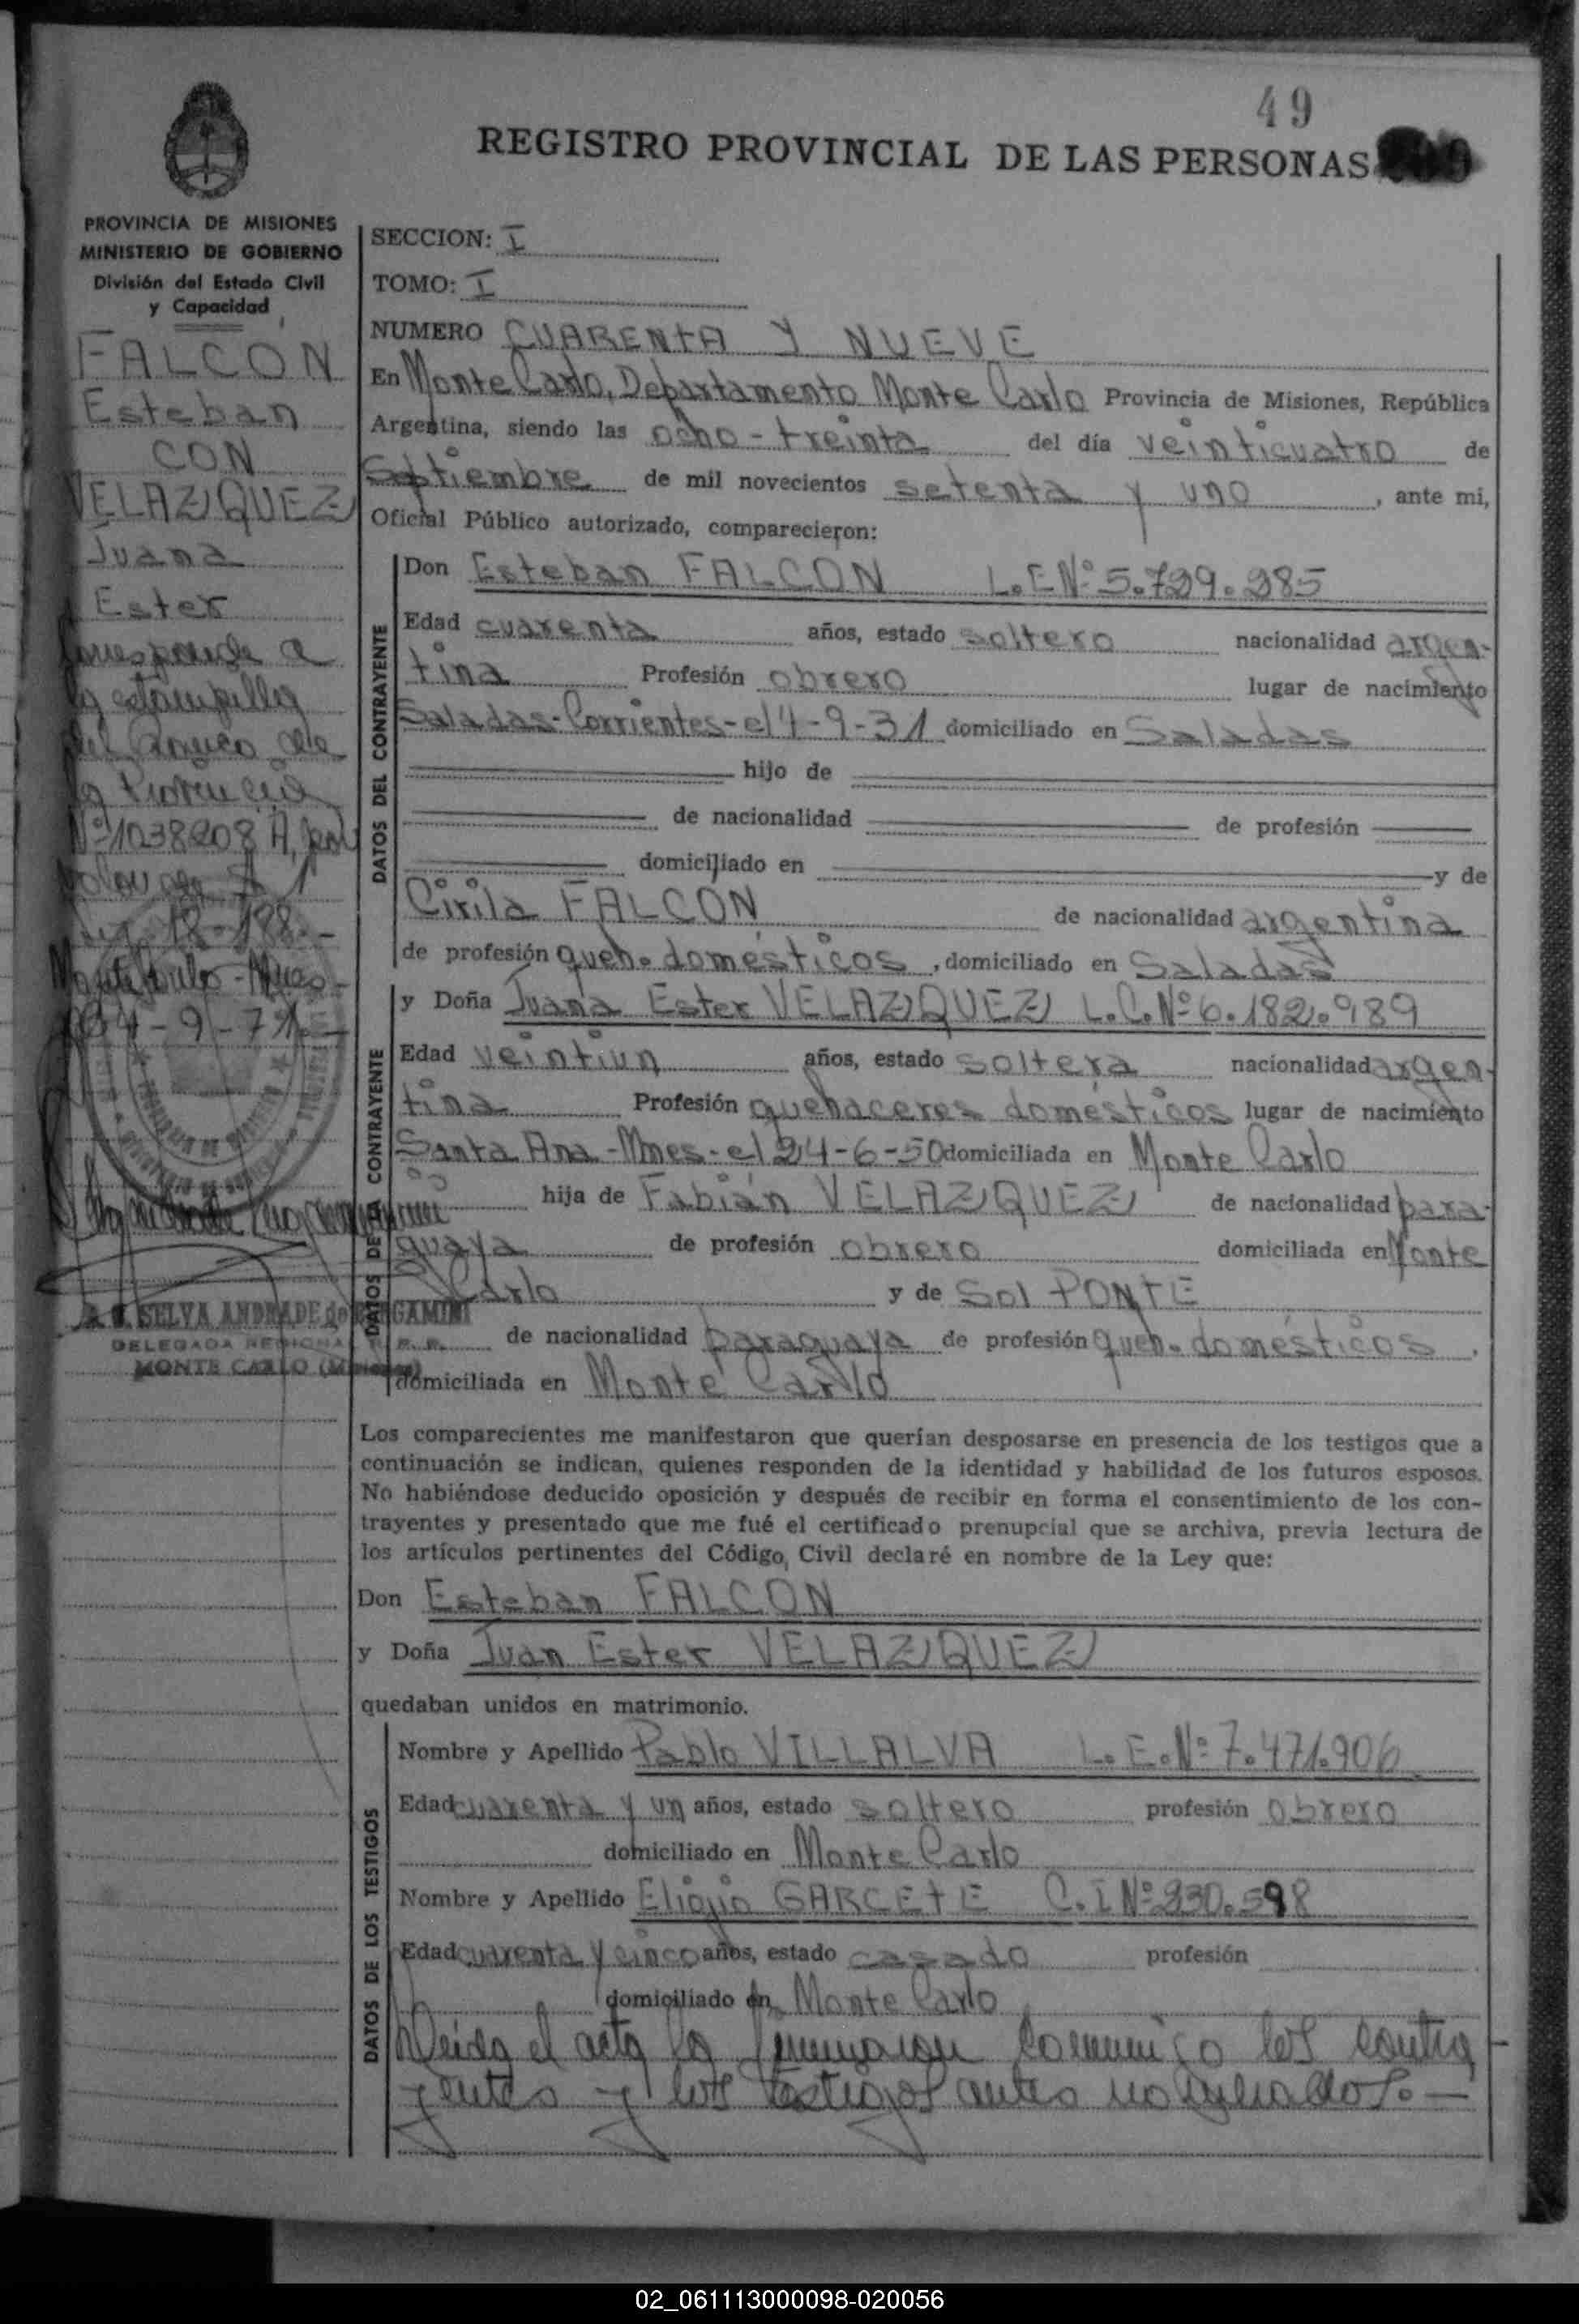 49
REGISTRO PROVINCIAL DE LAS PERSONAS
PROVINCIA DE MISIONES
MINISTERIO DE GOBIERNO
División del Estado Civil
y Capacidad
FALCON
Esteban
CON
VELAZQUEZ
Juana
Ester
Corresponde a
la estampilla
del Banco de
la Provincia
Nº 1038208 A, por
valor de $ 1
Ley 18.188.-
Monte Carlo - Mnes -
24-9-71.-
SELVA ANDRADE de BERGAMINI
DELEGADA REGIONAL R. P.
MONTE CARLO (Misiones)
SECCION: I
TOMO: I
NUMERO CUARENTA Y NUEVE
En Monte Carlo, Departamento Monte Carlo Provincia de Misiones, República
Argentina, siendo las ocho - treinta del día veinticuatro de
Setiembre de mil novecientos setenta y uno, ante mi,
Oficial Público autorizado, comparecieron:
DATOS DEL CONTRAYENTE
Don Esteban FALCON L.E Nº 5.729.285
Edad cuarenta años, estado soltero nacionalidad argen-
tina Profesión obrero lugar de nacimiento
Saladas-Corrientes-el 4-9-31 domiciliado en Saladas
hijo de
de nacionalidad de profesión
domiciliado en y de
Cirila FALCON de nacionalidad argentina
de profesión queh. domésticos, domiciliado en Saladas
DATOS DE LA CONTRAYENTE
y Doña Juana Ester VELAZQUEZ L.C.Nº 6.182.989
Edad veintiun años, estado soltera nacionalidad argen-
tina Profesión quehaceres domésticos lugar de nacimiento
Santa Ana-Mnes-el 24-6-50 domiciliada en Monte Carlo
hija de Fabián VELAZQUEZ de nacionalidad para-
guaya de profesión obrero domiciliada en Monte
Carlo y de Sol PONTE
de nacionalidad paraguaya de profesión queh. domésticos,
domiciliada en Monte Carlo
Los comparecientes me manifestaron que querían desposarse en presencia de los testigos que a
continuación se indican, quienes responden de la identidad y habilidad de los futuros esposos.
No habiéndose deducido oposición y después de recibir en forma el consentimiento de los con-
trayentes y presentado que me fué el certificado prenupcial que se archiva, previa lectura de
los artículos pertinentes del Código Civil declaré en nombre de la Ley que:
Don Esteban FALCON
y Doña Juan Ester VELAZQUEZ
quedaban unidos en matrimonio.
DATOS DE LOS TESTIGOS
Nombre y Apellido Pablo VILLALVA L.E.Nº 7.471.906
Edad cuarenta y un años, estado soltero profesión obrero
domiciliado en Monte Carlo
Nombre y Apellido Eligio GARCETE C.I Nº 230.598
Edad cuarenta y cinco años, estado casado profesión
domiciliado en Monte Carlo
Leida el acta la firmaron conmigo los contra
yentes y los testigos antes nombrados.-
02_061113000098-020056